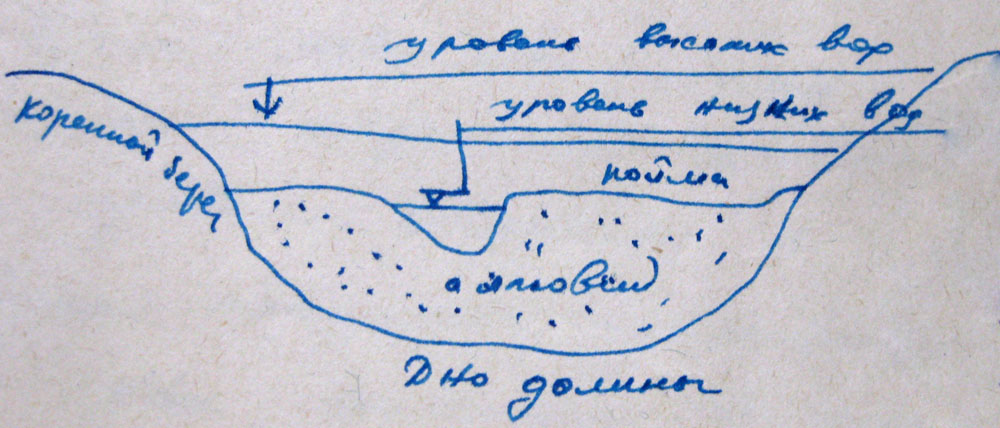 уровень высоких вод
уровень низких вод
коренной берег
пойма
аллювий
Дно долины